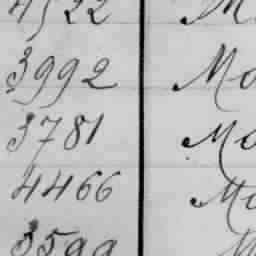 4522 M
3992 Mo
3781 Mo
4466 Mo
3599 M